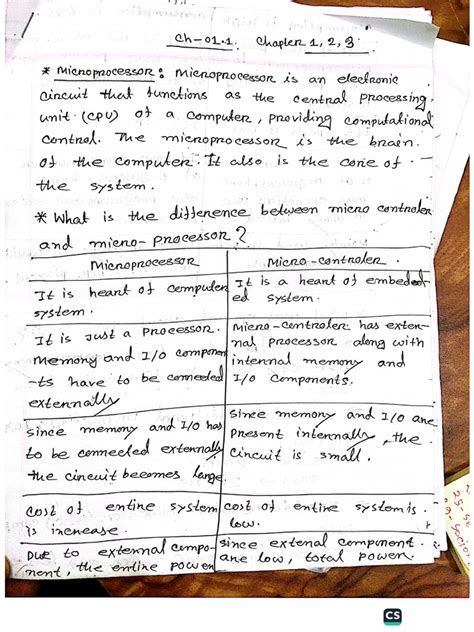 Ch-01.1. Chapter 1, 2, 3.
* Microprocessor: Microprocessor is an electronic
circuit that functions as the central processing
unit (CPU) of a computer, providing computational
control. The microprocessor is the brain
of the computer. It also is the core of
the system.
* What is the difference between micro controler
and micro-processor?
Microprocessor
It is heart of computer
system.
It is just a processor.
Memory and I/O component
-ts have to be connected
externally
since memory and I/O has
to be connected externally
the circuit becomes large.
cost of entire system
is increase.
Due to external compo-
nent, the entire power
Micro-controler.
It is a heart of embedd
ed system.
Micro-controler has exter-
nal processor along with
internal memory and
I/O components.
since memory and I/O are
present internally, the
circuit is small.
cost of entire system is
low.
since extenal component
are low, total power.
CS